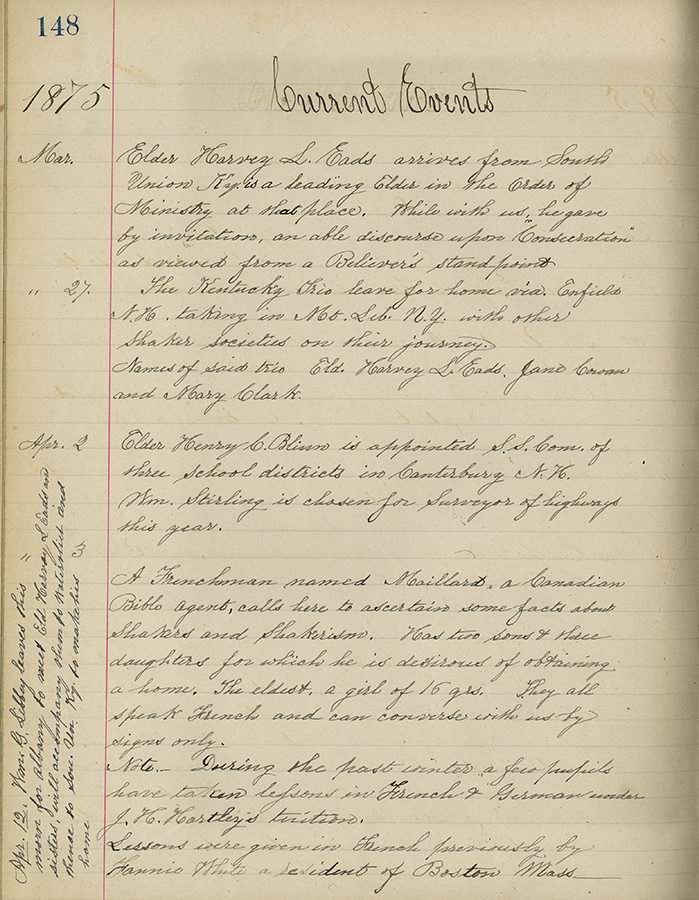 148
1875
Current Events
Mar.
Elder Harvey L. Eads arrives from South
Union Ky. is a leading Elder in the Order of
Ministry at that place. While with us, he gave
by invitation, an able discourse upon "Consecration"
as viewed from a Believer's standpoint
" 27.
The Kentucky Trio leave for home via. Enfield
N.H. taking in Mt. Leb. N.Y. with other
Shaker societies on their journey.
Names of said trio Eld. Harvey L. Eads. Jane Cowan
and Mary Clark.
Apr. 2
Elder Henry C. Blinn is appointed S.S. Com. of
three school districts in Canterbury N.H.
Wm. Stirling is chosen for Surveyor of highways
this year.
" 3
A Frenchman named Maillard, a Canadian
Bible agent, calls here to ascertain some facts about
Shakers and Shakerism. Has two sons & three
daughters for which he is desirous of obtaining
a home. The eldest, a girl of 16 yrs. They all
speak French and can converse with us by
signs only.
Note.— During the past winter a few pupils
have taken lessons in French & German under
J. H. Hartley's tuition.
Lessons were given in French previously by
Fannie White a resident of Boston Mass.—
Apr. 12. Wm. G. Libby leaves this
morn for Albany to meet Eld. Harvey L Eads and
sisters, will accompany them to Watervliet and
thence to Sou. Un. Ky. to make his
home